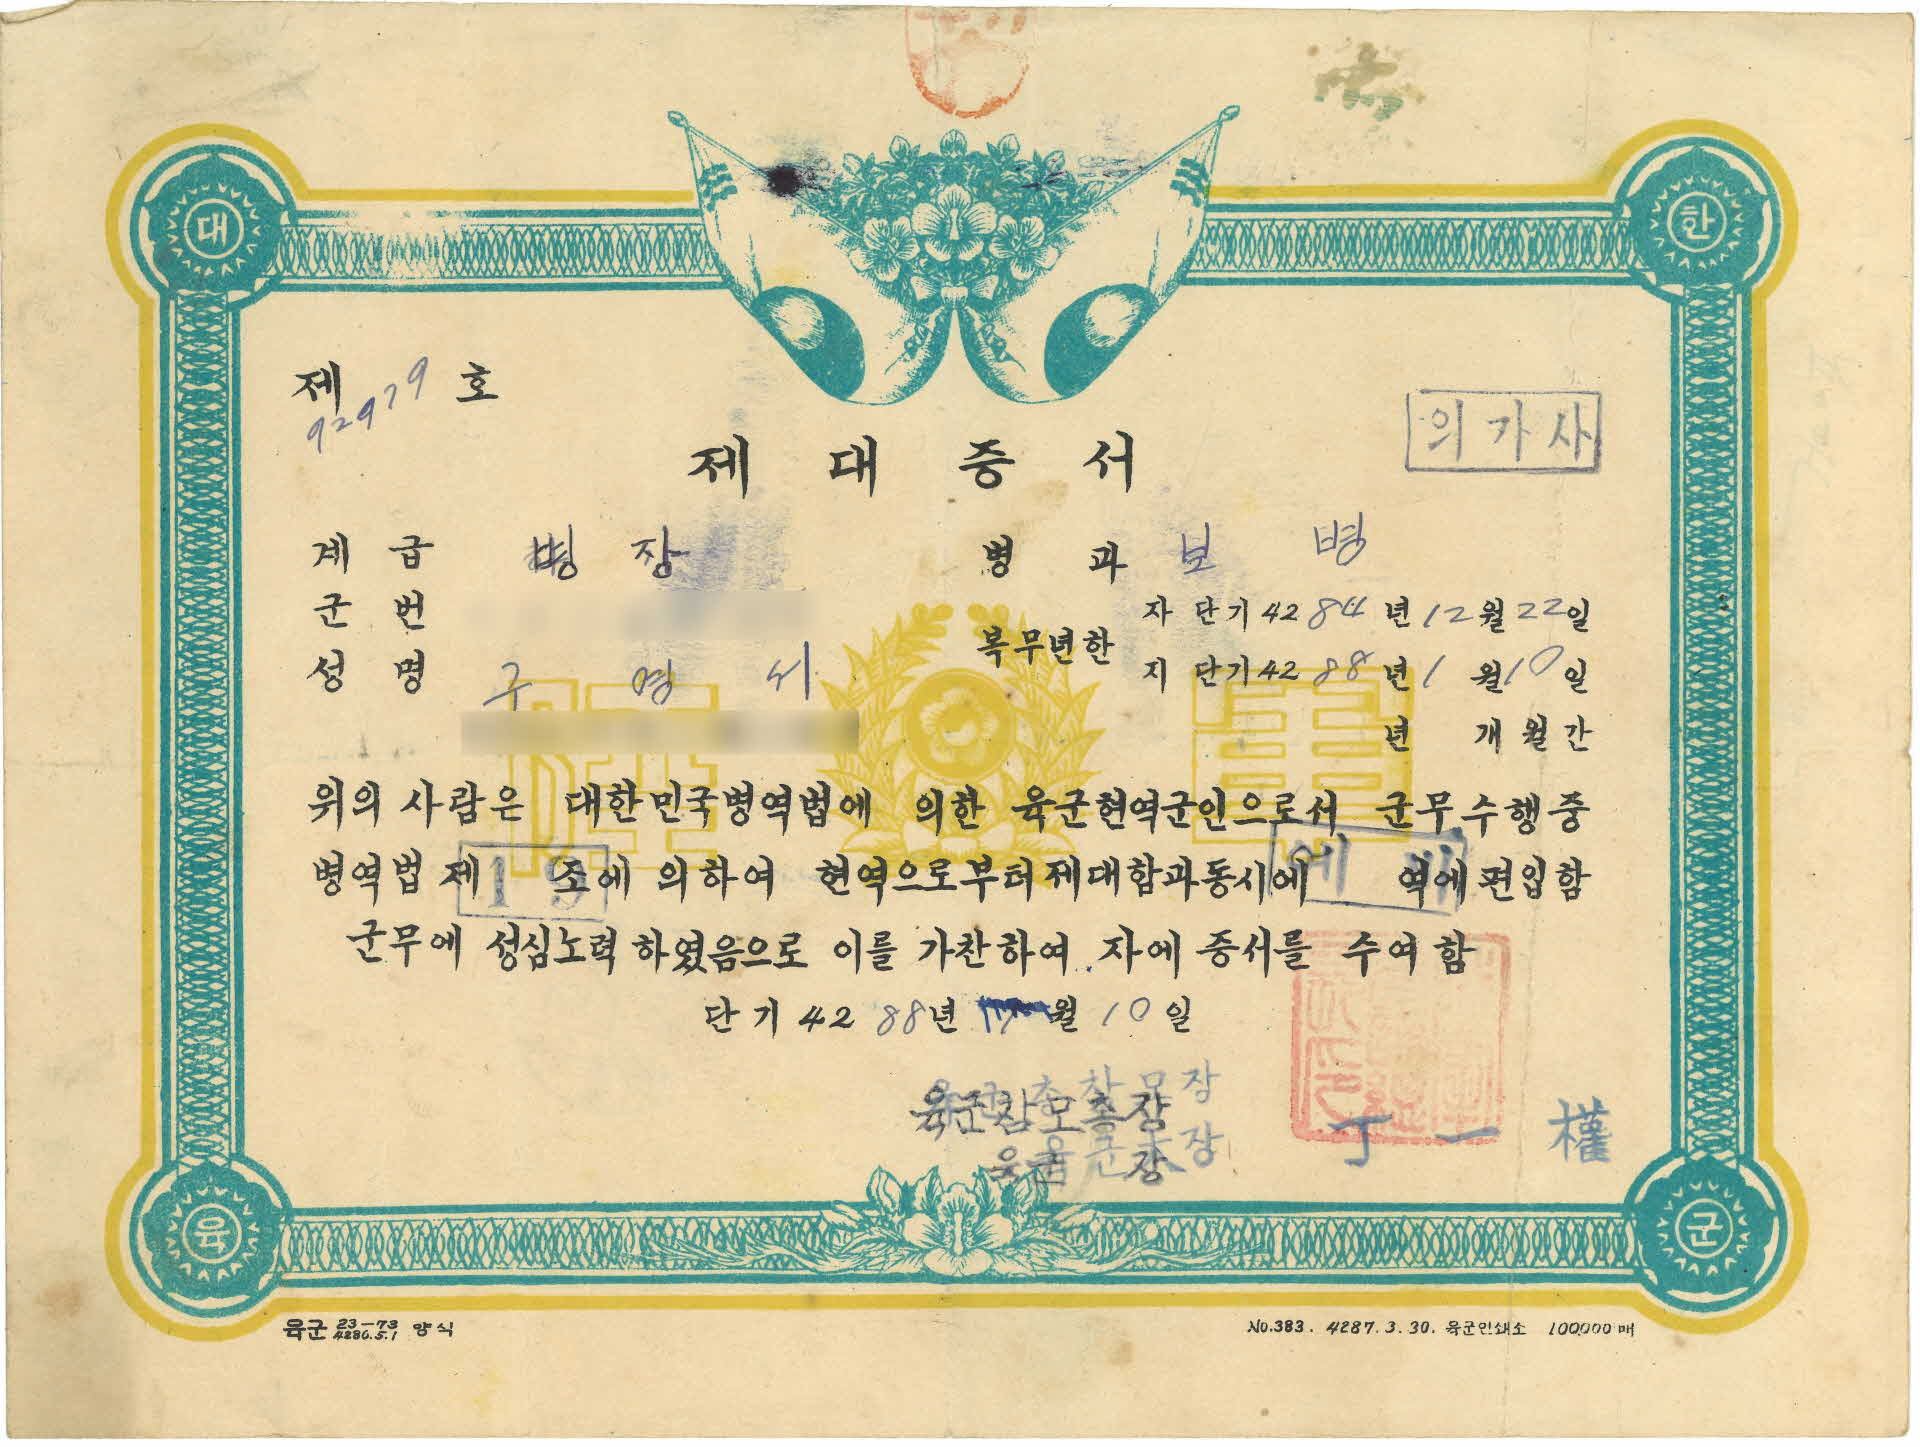 대 한
제 92979 호
의가사
제대증서
계급 병장 병과 보병
군번
자 단기 4284년 12월 22일
성명 구영서 복무년한
지 단기 4288년 1월 10일
년 개월간
陸軍
위의 사람은 대한민국병역법에 의한 육군현역군인으로서 군무수행중
병역법 제 조에 의하여 현역으로부터 제대함과동시에 역에 편입함
군무에 성심노력 하였음으로 이를 가찬하여 자에 증서를 수여함
단기 4288년 월 10일
육군참모총장
丁一權
육 군
육군 23-73 4286.5.1 양식
No.383. 4287.3.30. 육군인쇄소 100,000매